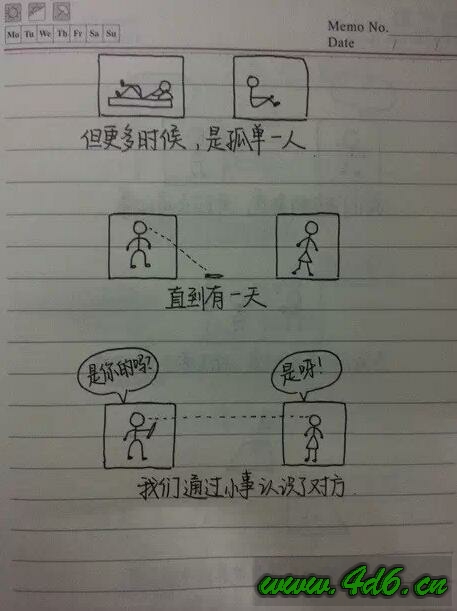 Memo No.
Mo Tu We Th Fr Sa Su
Date / /
但更多时候，是孤单一人
直到有一天
是你的吗？
是呀！
我们通过小事认识了对方
www.4d6.cn